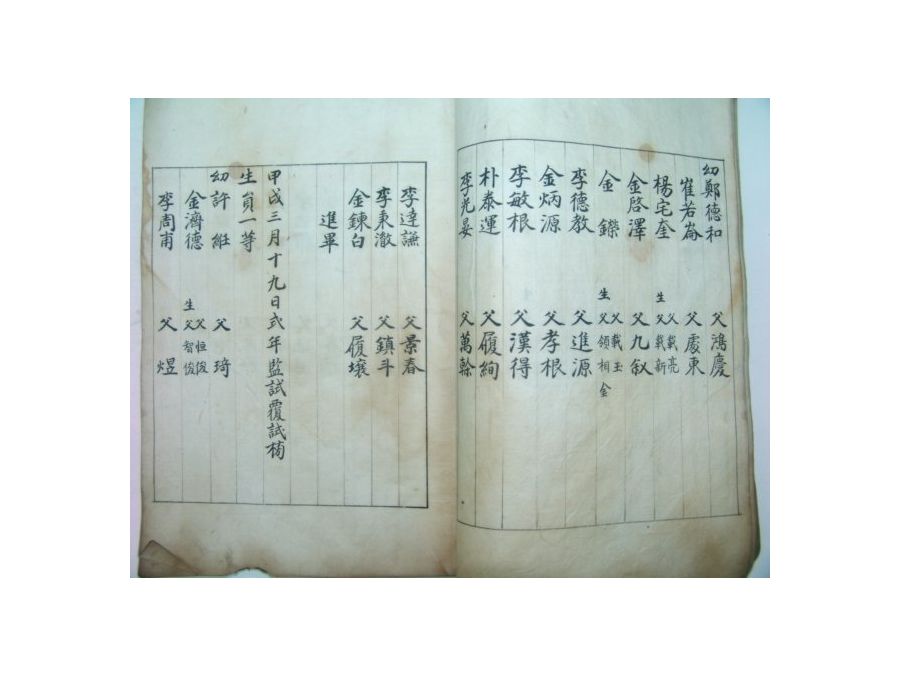 幼鄭德和 父鴻慶
崔若崙 父處東
楊宅奎 父載亮
生父載新
金啓澤 父九叙
金鑠 父載玉
生父領相金
李德教 父進源
金炳源 父孝根
李敏根 父漢得
朴泰運 父履絢
李光晏 父萬榦
李達謙 父景春
李東澈 父鎮斗
金鍊白 父履壤
進單
甲戌三月十九日式年監試覆試榜
生員一等
幼許 父琦
金濟德 父恒俊
生父智俊
李周甫 父煜